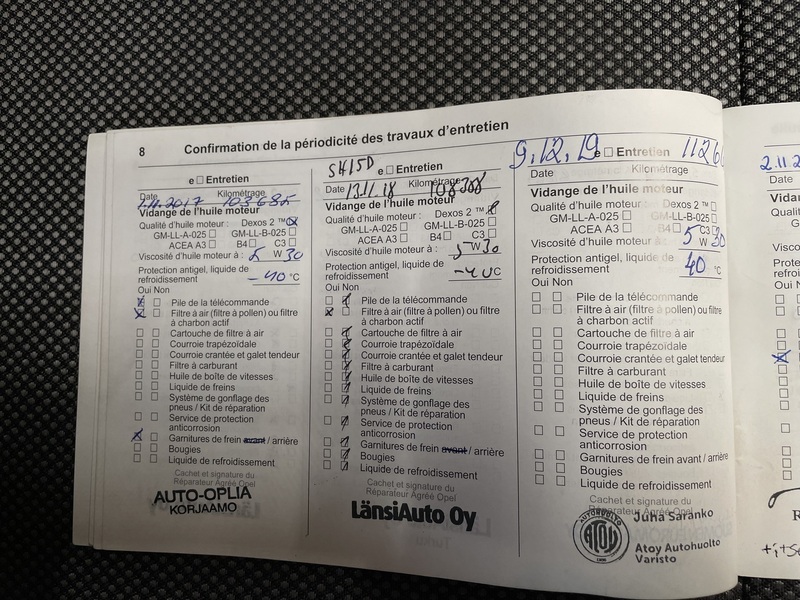 8 Confirmation de la périodicité des travaux d'entretien
e Entretien
Date Kilométrage
1.11.2017 103685
Vidange de l'huile moteur
Qualité d'huile moteur : Dexos 2 ™
GM-LL-A-025 GM-LL-B-025
ACEA A3 B4 C3
Viscosité d'huile moteur à : 5 W 30
Protection antigel, liquide de
refroidissement -40 °C
Oui Non
Pile de la télécommande
Filtre à air (filtre à pollen) ou filtre
à charbon actif
Cartouche de filtre à air
Courroie trapézoïdale
Courroie crantée et galet tendeur
Filtre à carburant
Huile de boîte de vitesses
Liquide de freins
Système de gonflage des
pneus / Kit de réparation
Service de protection
anticorrosion
Garnitures de frein avant / arrière
Bougies
Liquide de refroidissement
Cachet et signature du
Réparateur Agréé Opel
AUTO-OPLIA
KORJAAMO
SH15D
e Entretien
Date 13.11.18 Kilométrage 108388
Vidange de l'huile moteur
Qualité d'huile moteur : Dexos 2 ™
GM-LL-A-025 GM-LL-B-025
ACEA A3 B4 C3
Viscosité d'huile moteur à : 5 W 30
Protection antigel, liquide de
refroidissement -40 °C
Oui Non
Pile de la télécommande
Filtre à air (filtre à pollen) ou filtre
à charbon actif
Cartouche de filtre à air
Courroie trapézoïdale
Courroie crantée et galet tendeur
Filtre à carburant
Huile de boîte de vitesses
Liquide de freins
Système de gonflage des
pneus / Kit de réparation
Service de protection
anticorrosion
Garnitures de frein avant / arrière
Bougies
Liquide de refroidissement
Cachet et signature du
Réparateur Agréé Opel
LänsiAuto Oy
9.12.19 e Entretien 1126
Date Kilométrage
Vidange de l'huile moteur
Qualité d'huile moteur : Dexos 2 ™
GM-LL-A-025 GM-LL-B-025
ACEA A3 B4 C3
Viscosité d'huile moteur à : 5 W 30
Protection antigel, liquide de
refroidissement 40 °C
Oui Non
Pile de la télécommande
Filtre à air (filtre à pollen) ou filtre
à charbon actif
Cartouche de filtre à air
Courroie trapézoïdale
Courroie crantée et galet tendeur
Filtre à carburant
Huile de boîte de vitesses
Liquide de freins
Système de gonflage des
pneus / Kit de réparation
Service de protection
anticorrosion
Garnitures de frein avant / arrière
Bougies
Liquide de refroidissement
Cachet et signature du
Réparateur Agréé Opel
AUTOHUOLTO
ATOY
Juha Saranko
Atoy Autohuolto
Varisto
2.11.2
Date
Vidan
Qualité
Viscosi
Protec
refroidi
Oui N